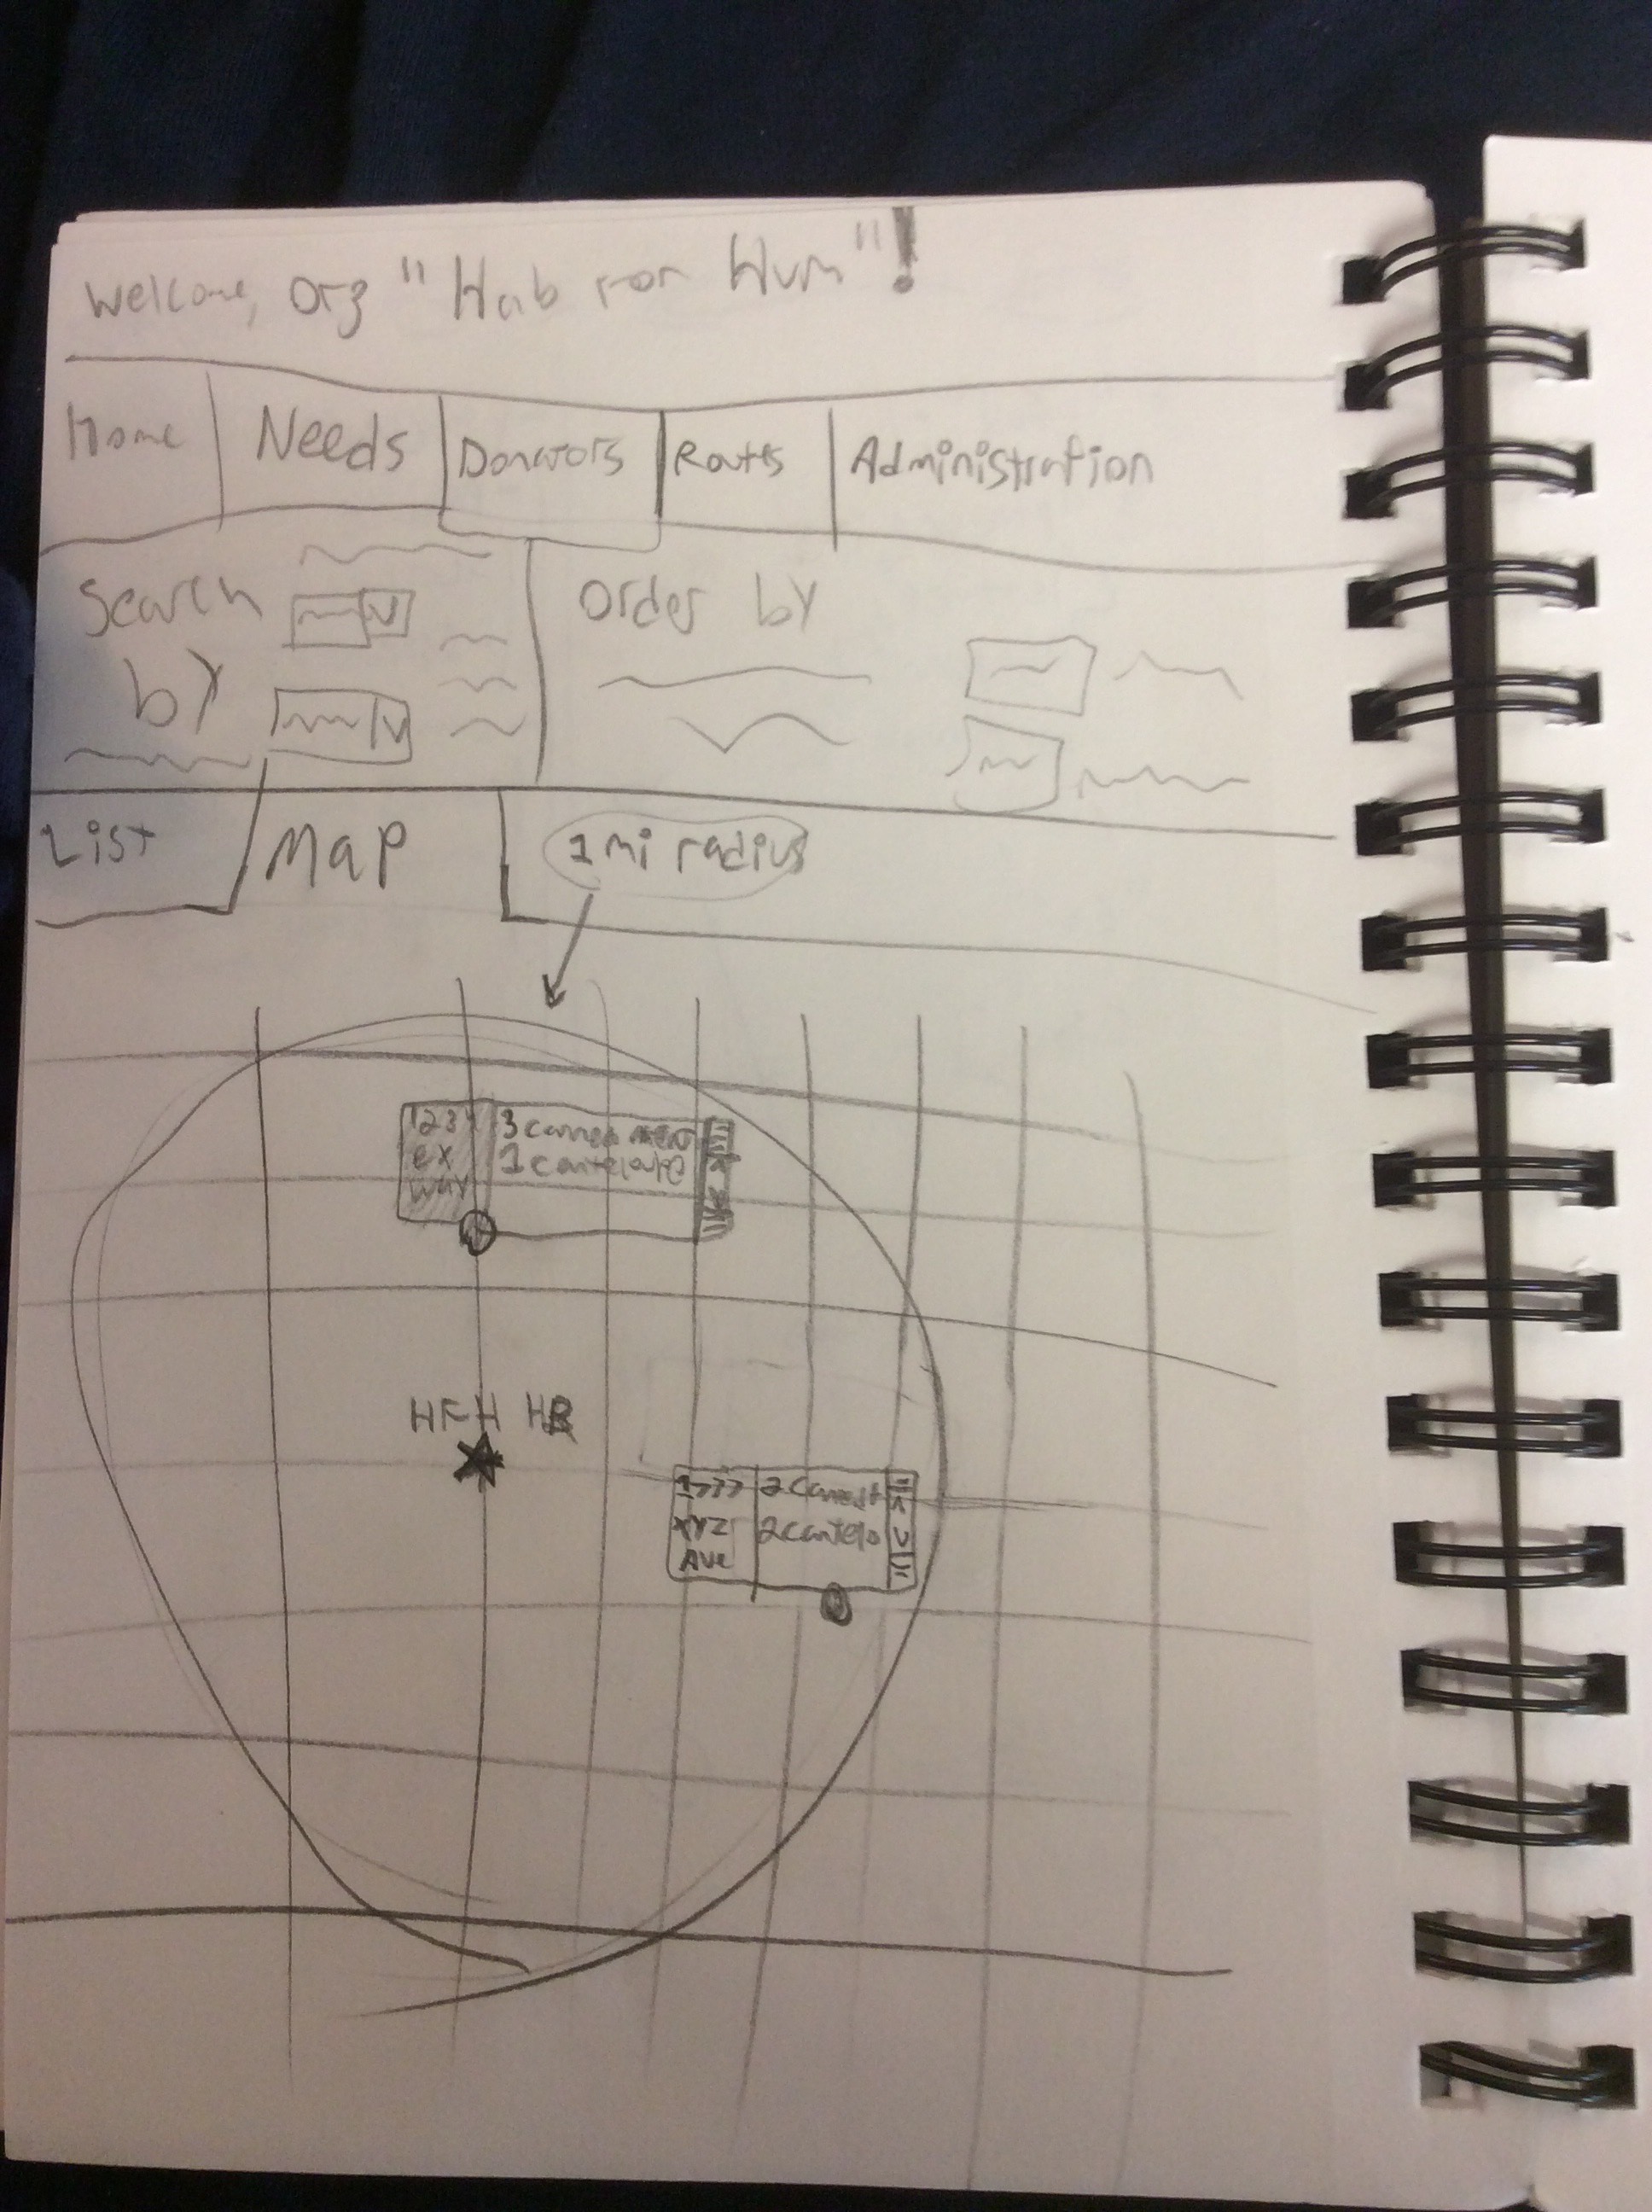 Welcome, Org "Hab for Hum"!
Home Needs Donators Routes Administration
Search by
Order by
List Map 1 mi radius
123
ex
way
3 canned
1
HFH
XYZ
Ave
2
2 cantelo